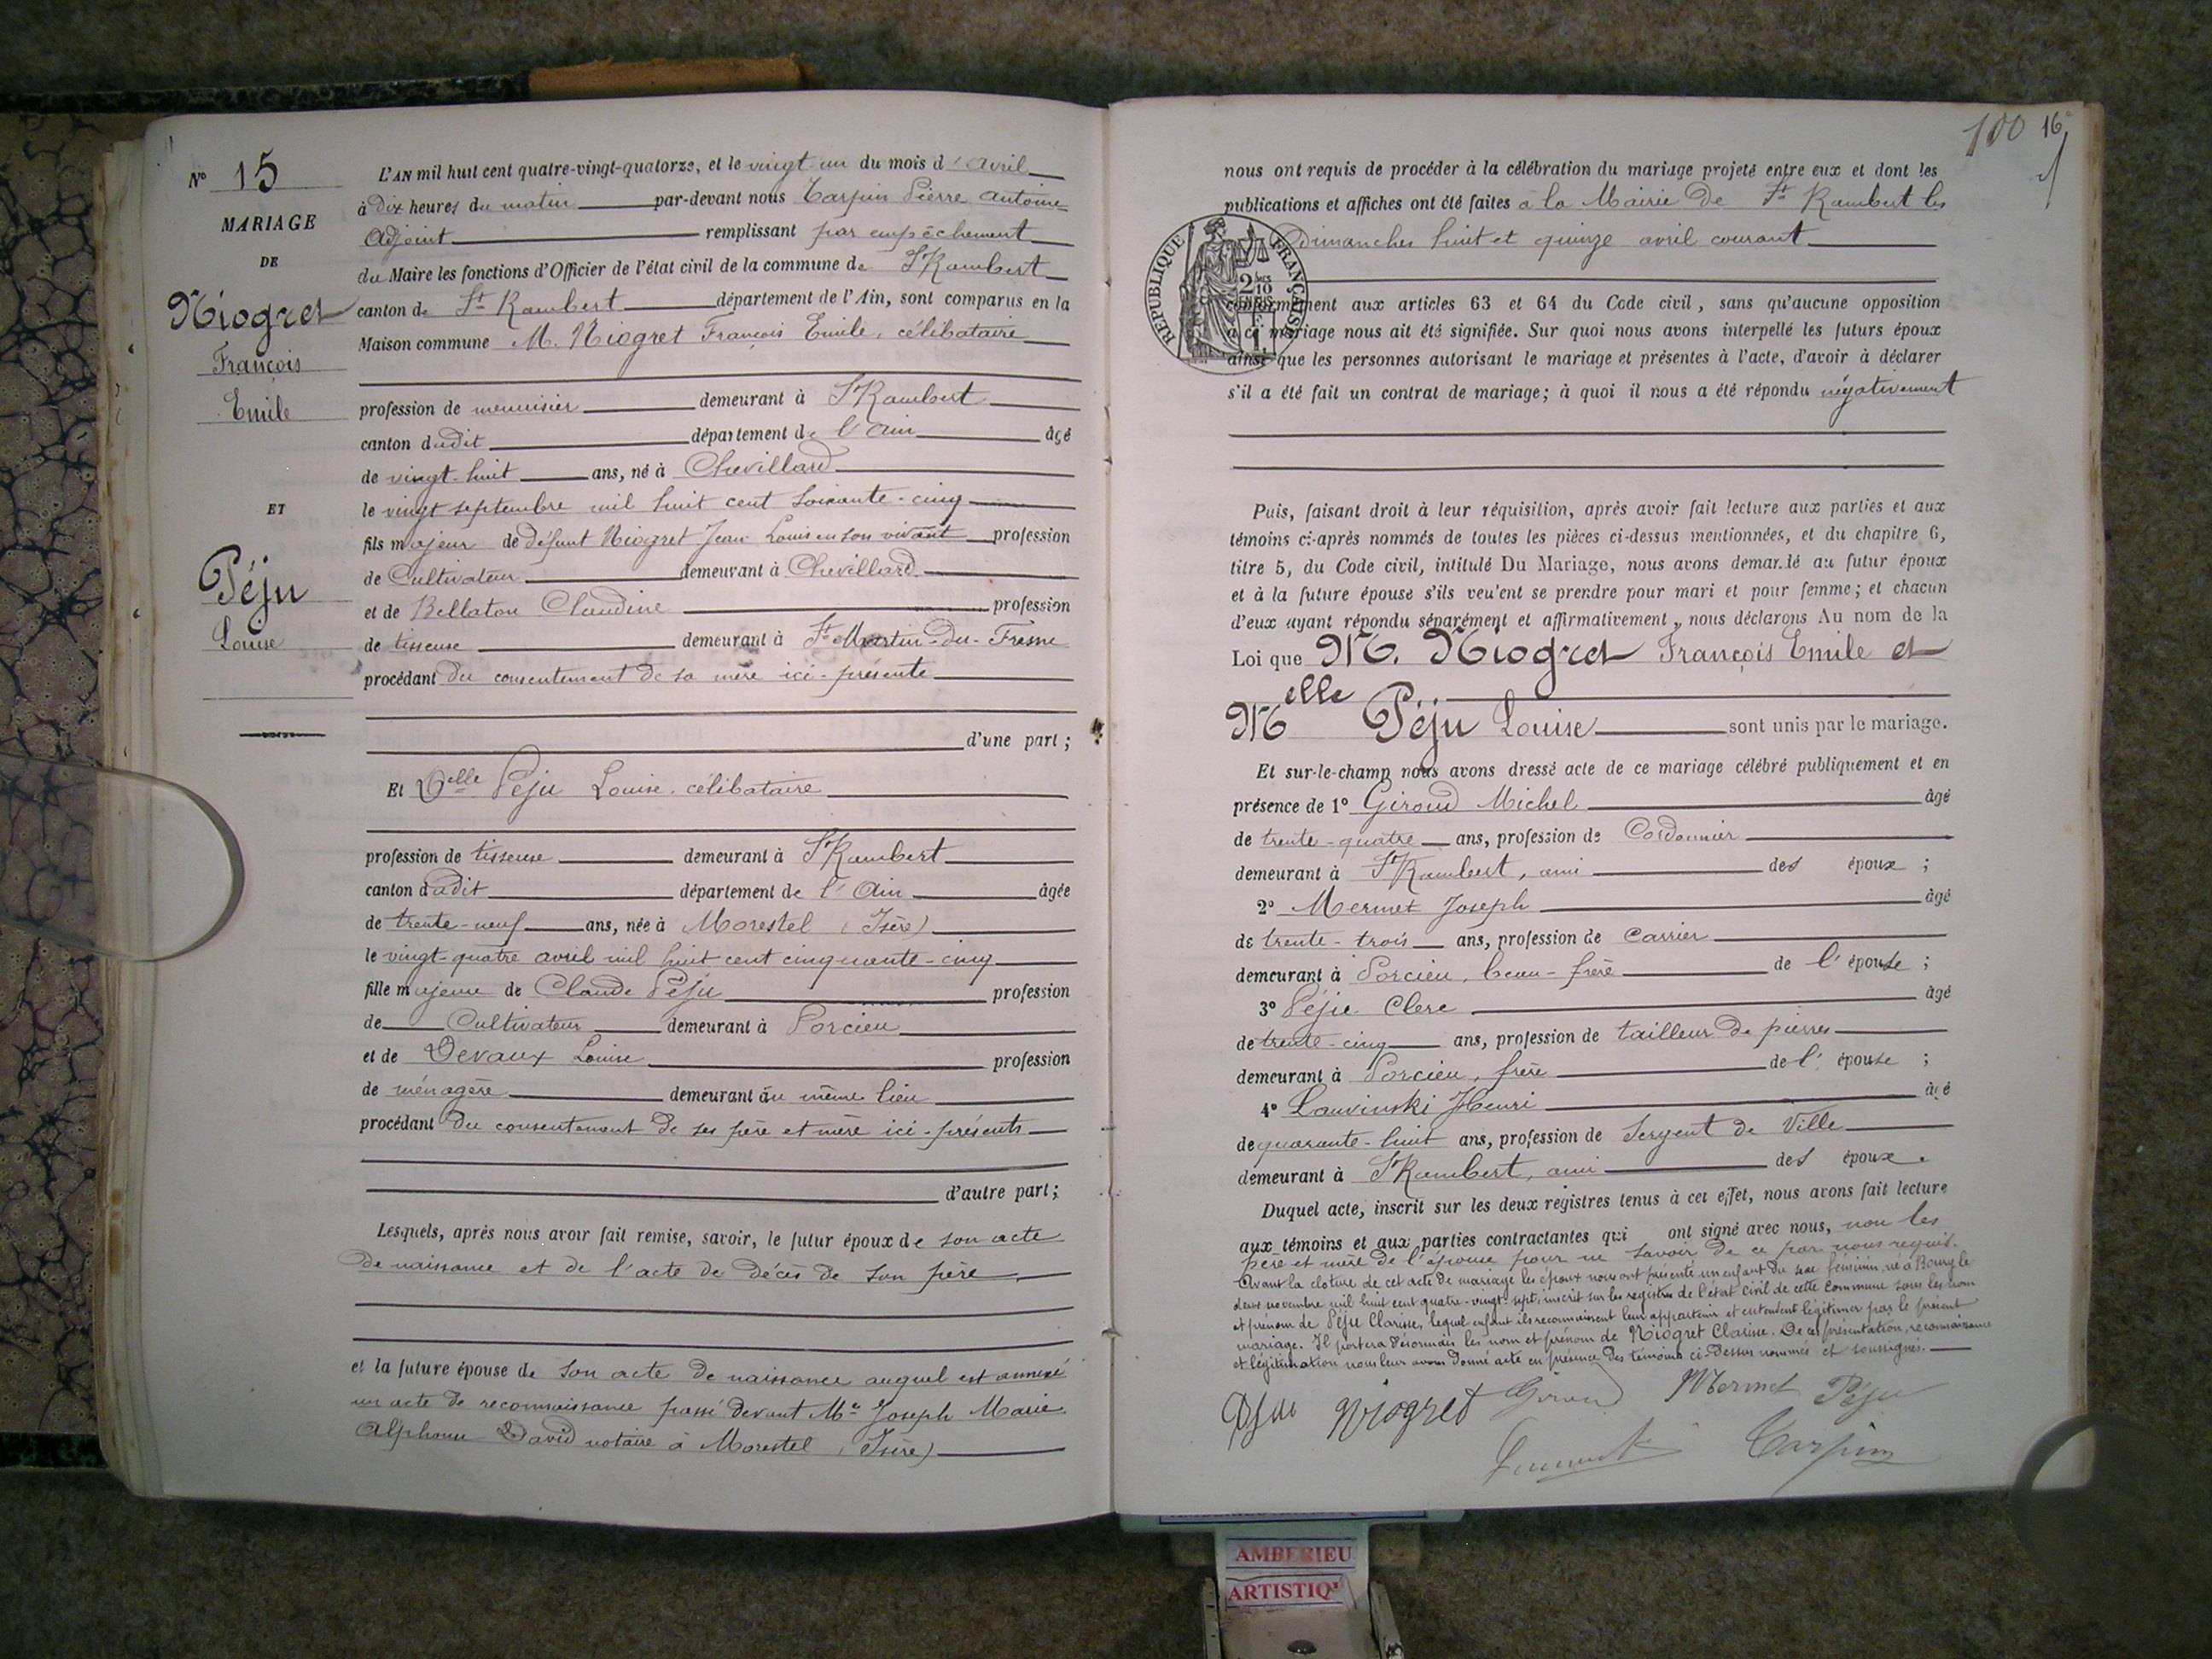 N° 15
MARIAGE
DE
Niogret
François
Emile
ET
Péju
Louise
L'AN mil huit cent quatre-vingt-quatorze, et le vingt-un du mois d'avril
à dix heures du matin par-devant nous Tarpin Pierre Antoine
Adjoint remplissant par empêchement
du Maire les fonctions d'Officier de l'état civil de la commune de St Rambert
canton de St Rambert département de l'Ain, sont comparus en la
Maison commune M. Niogret François Emile, célibataire
profession de menuisier demeurant à St Rambert
canton dudit département de l'Ain âgé
de vingt-huit ans, né à Chevillard
le vingt septembre mil huit cent soixante-cinq
fils majeur de défunt Niogret Jean Louis en son vivant profession
de Cultivateur demeurant à Chevillard
et de Bellaton Claudine profession
de tisseuse demeurant à St Martin-du-Fresne
procédant du consentement de sa mère ici-présente
d'une part;
Et Delle Péju Louise, célibataire
profession de tisseuse demeurant à St Rambert
canton dudit département de l'Ain âgée
de trente-neuf ans, née à Morestel (Isère)
le vingt-quatre avril mil huit cent cinquante-cinq
fille majeure de Claude Péju profession
de Cultivateur demeurant à Porcieu
et de Devaux Louise profession
de ménagère demeurant au même lieu
procédant du consentement de ses père et mère ici-présents
d'autre part;
Lesquels, après nous avoir fait remise, savoir, le futur époux de son acte
de naissance et de l'acte de décès de son père
et la future épouse de son acte de naissance auquel est annexé
un acte de reconnaissance passé devant Me Joseph Marie
Alphonse David notaire à Morestel (Isère)
100 16
nous ont requis de procéder à la célébration du mariage projeté entre eux et dont les
publications et affiches ont été faites à la Mairie de St Rambert les
Dimanches huit et quinze avril courant
RÉPUBLIQUE FRANÇAISE
2/10 EN SUS
conformément aux articles 63 et 64 du Code civil, sans qu'aucune opposition
à ce mariage nous ait été signifiée. Sur quoi nous avons interpellé les futurs époux
ainsi que les personnes autorisant le mariage et présentes à l'acte, d'avoir à déclarer
s'il a été fait un contrat de mariage; à quoi il nous a été répondu négativement
Puis, faisant droit à leur réquisition, après avoir fait lecture aux parties et aux
témoins ci-après nommés de toutes les pièces ci-dessus mentionnées, et du chapitre 6,
titre 5, du Code civil, intitulé Du Mariage, nous avons demandé au futur époux
et à la future épouse s'ils veulent se prendre pour mari et pour femme; et chacun
d'eux ayant répondu séparément et affirmativement, nous déclarons Au nom de la
Loi que M. Niogret François Emile et
Melle Péju Louise sont unis par le mariage.
Et sur-le-champ nous avons dressé acte de ce mariage célébré publiquement et en
présence de 1° Giroud Michel âgé
de trente-quatre ans, profession de Cordonnier
demeurant à St Rambert, ami des époux ;
2° Mermet Joseph âgé
de trente-trois ans, profession de carrier
demeurant à Porcieu, beau-frère de l'épouse ;
3° Péju Clerc âgé
de trente-cinq ans, profession de tailleur de pierres
demeurant à Porcieu, frère de l'épouse ;
4° Lauvinski Henri âgé
de quarante-huit ans, profession de Sergent de Ville
demeurant à St Rambert, ami des époux.
Duquel acte, inscrit sur les deux registres tenus à cet effet, nous avons fait lecture
aux témoins et aux parties contractantes qui ont signé avec nous, non les
père et mère de l'épouse pour ne savoir de ce par nous requis.
Avant la clôture de cet acte de mariage les époux nous ont présenté un enfant du sexe féminin, né à Bourg le
deux novembre mil huit cent quatre-vingt-sept, inscrit sur les registres de l'état civil de cette commune sous les nom
et prénom de Péju Clarisse, lequel enfant ils reconnaissent leur appartenir et entendent légitimer par le présent
mariage. Il portera désormais les nom et prénom de Niogret Clarisse. De ces présentation, reconnaissance
et légitimation nous leur avons donné acte en présence des témoins ci-dessus nommés et soussignés.
Niogret Giroud Mermet Péju
Tarpin
AMBERIEU
ARTISTIQ'